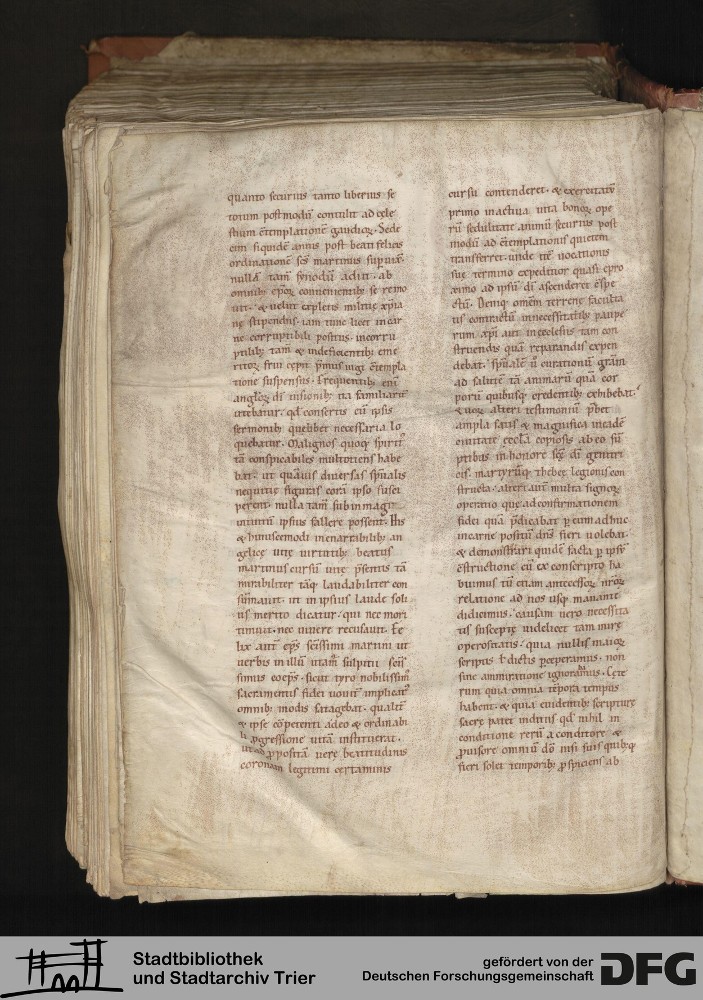 quanto securius tanto liberius se
totum postmodū contulit ad cęle
stium cōtemplationē gaudioꝝ. Sede
cim siquidē annis post beati felicis
ordinationē scs̄ martinus supuix̄.
nullā tam̄ synodū adiit. ab
omnib; ep̄oꝝ conuenientib; se remo
uit. & uelut expletis militię xp̄ia
nę stipendiis. iam tunc licet in car
ne corruptibili positus. incorru
ptilib; tam̄ & indeficientib; eme
ritoꝝ frui cępit p̄miis iugi cōtempla
tione suspensus. Frequentib; eni
angloꝝ dī uisionib; ita familiarit̄
utebatur. qd̄ consertis cū ipsis
sermonib; quelibet necessaria lo
quebatur. Malignos quoq; spirit̄
tā conspicabiles multotiens habe
bat. ut quāuis diuersas sp̄ualis
nequitię figuras corā ipso susci
perent. nulla tam̄ sub imagine
intuitū ipsius fallere possent. His
& huiuscemodi inenarrabilib; an
gelicę uitę uirtutib; beatus
martinus cursū uitę p̄sentis tā
mirabiliter tāq; laudabiliter con
sūmauit. ut in ipsius laude soli
us merito dicatur. qui nec mori
timuit. nec uiuere recusauit. Fe
lix aut̄ ep̄s sc̄issimi martini ut
uerbis in illū utam̄ sulpitii sc̄is
simus coep̄s. sicut tyro nobilissim̄
sacramentis fidei nouit̄ implicat̄
omnib; modis satagebat. qualit̄
& ipse cōpetenti adeo & ordinabi
li ꝓgressione uitā institueret.
ut ad ꝓpositā uerę beatitudinis
coronam legitimi certaminis
cursu contenderet. & exercitatꝰ
primo in actiua uita bonoꝝ ope
rū sedulitate animū securius post
modū ad cōtemplationis quietem
transferret. unde itē uocationis
suę termino expeditior quasi e pro
ximo ad ipsū dī ascenderet cōspe
ctū. Deniq; omēm terrenę faculta
tis contractū in necessitatib; paupe
rum xp̄i aut in ecclesiis tam con
struendis quā reparandis expen
debat. sp̄ualē ū curationū gr̄am
ad salutē tā animarū quā cor
porū quibusq; credentib; exhibebat.
& uoꝝ alteri testimoniū p̄bet
ampla satis & magnifica in eadē
ciuitate ęcclā copiosis ab eo sū
ptibus in honore scę dī genitri
cis. martyrūq; thebeę legionis con
structa. alteri aut̄ multa signoꝝ
operatio quę ad confirmationem
fidei quā p̄dicabat ꝑ eum adhuc
in carne positū dn̄s fieri uolebat.
& demonstrari quidē facta ꝑ ipsū
cōstructione cū ex conscripto ha
buimus tū etiam antecessoꝝ nr̄oꝝ
relatione ad nos usq; manante
didicimus. causam uero necessita
tis susceptę uidelicet tam mirę
operositatis. quia nullis maioꝝ
scriptis ł dictis peperamus. non
sine ammiratione ignoramus. Cęte
rum quia omnia tēpora tempus
habent. & quia euidentib; scripturę
sacrę patet indiciis qd̄ nihil in
conditione rerū a conditore &
ꝓuisore omniū dō nisi suis quibꝰq;
fieri solet temporib; ꝓspiciens ab
Stadtbibliothek
und Stadtarchiv Trier
gefördert von der
Deutschen Forschungsgemeinschaft
DFG